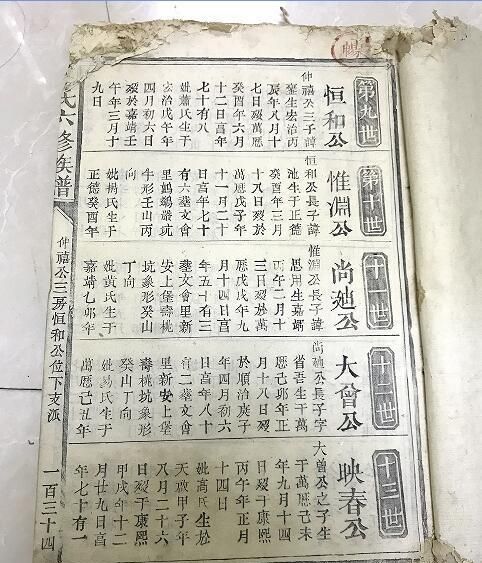 第九世
恒和公
仲禧公三子諱
肇生宏治丙
辰年八月十
七日歿萬厯
癸酉年六月
十二日亯年
七十有八
妣蕭氏生于
宏治戊午年
四月初六日
歿於嘉靖壬
午年三月十
九日
第十世
惟淵公
恒和公長子諱
池生于正德
癸酉年三月
十八日歿於
萬厯戊子年
十一月二十
日亯年七十
有六塟文會
里鷓鴣嚴坑
牛形壬山丙
向
妣楊氏生于
正德癸酉年
十一世
尚廸公
惟淵公長子諱
思用生嘉靖
丙午二月十
三日歿於萬
厯戊戌年九
月十四日亯
年五十有三
塟文會里新
安上堡壽桃
坑象形癸山
丁向
妣黃氏生于
嘉靖乙卯年
十二世
大曾公
尚廸公長子字
省吾生于萬
厯己卯年正
月十八日歿
於順治庚子
年四月初六
日亯年八十
有二塟文會
里新安上堡
壽桃坑象形
癸山丁向
妣昜氏生于
萬厯己丑年
十三世
映春公
大曾公之子生
于萬厯己未
年九月十四
日歿于康熙
丙午年正月
十四日
妣高氏生於
天啟甲子年
八月二十六
日歿于康熙
甲戌年十二
月廿九日亯
年七十有一
氏六修族譜
仲禧公三房恒和公位下支派
一百三十四